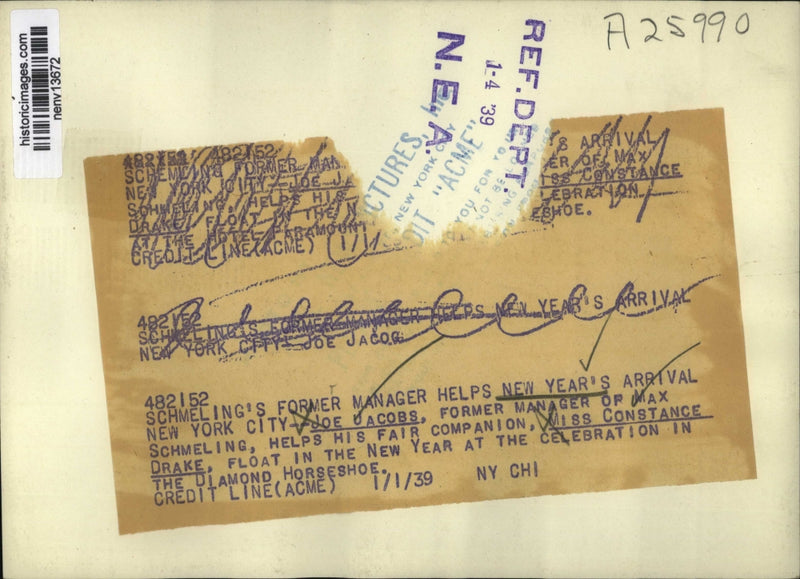 historicimages.com
nenv13672
A25990
REF. DEPT.
1-4 '39
N.E.A.
CTURES, Inc
NEW YORK CITY
DIT "ACME"
YOU FOR YO
NOT BE
482152 482152
SCHEMLING FORMER MAN 'S ARRIVAL
NEW YORK CITY—JOE JA ER OF MAX
SCHMELING, HELPS HIS MISS CONSTANCE
DRAKE, FLOAT IN THE N EBRATION
AT THE HOTEL PARAMOUNT ESHOE.
CREDIT LINE(ACME) 1/1/
482152
SCHMELING'S FORMER MANAGER HELPS NEW YEAR'S ARRIVAL
NEW YORK CITY—JOE JACOB
482152
SCHMELING'S FORMER MANAGER HELPS NEW YEAR'S ARRIVAL
NEW YORK CITY—JOE JACOBS, FORMER MANAGER OF MAX
SCHMELING, HELPS HIS FAIR COMPANION, MISS CONSTANCE
DRAKE, FLOAT IN THE NEW YEAR AT THE CELEBRATION IN
THE DIAMOND HORSESHOE.
CREDIT LINE(ACME) 1/1/39 NY CHI